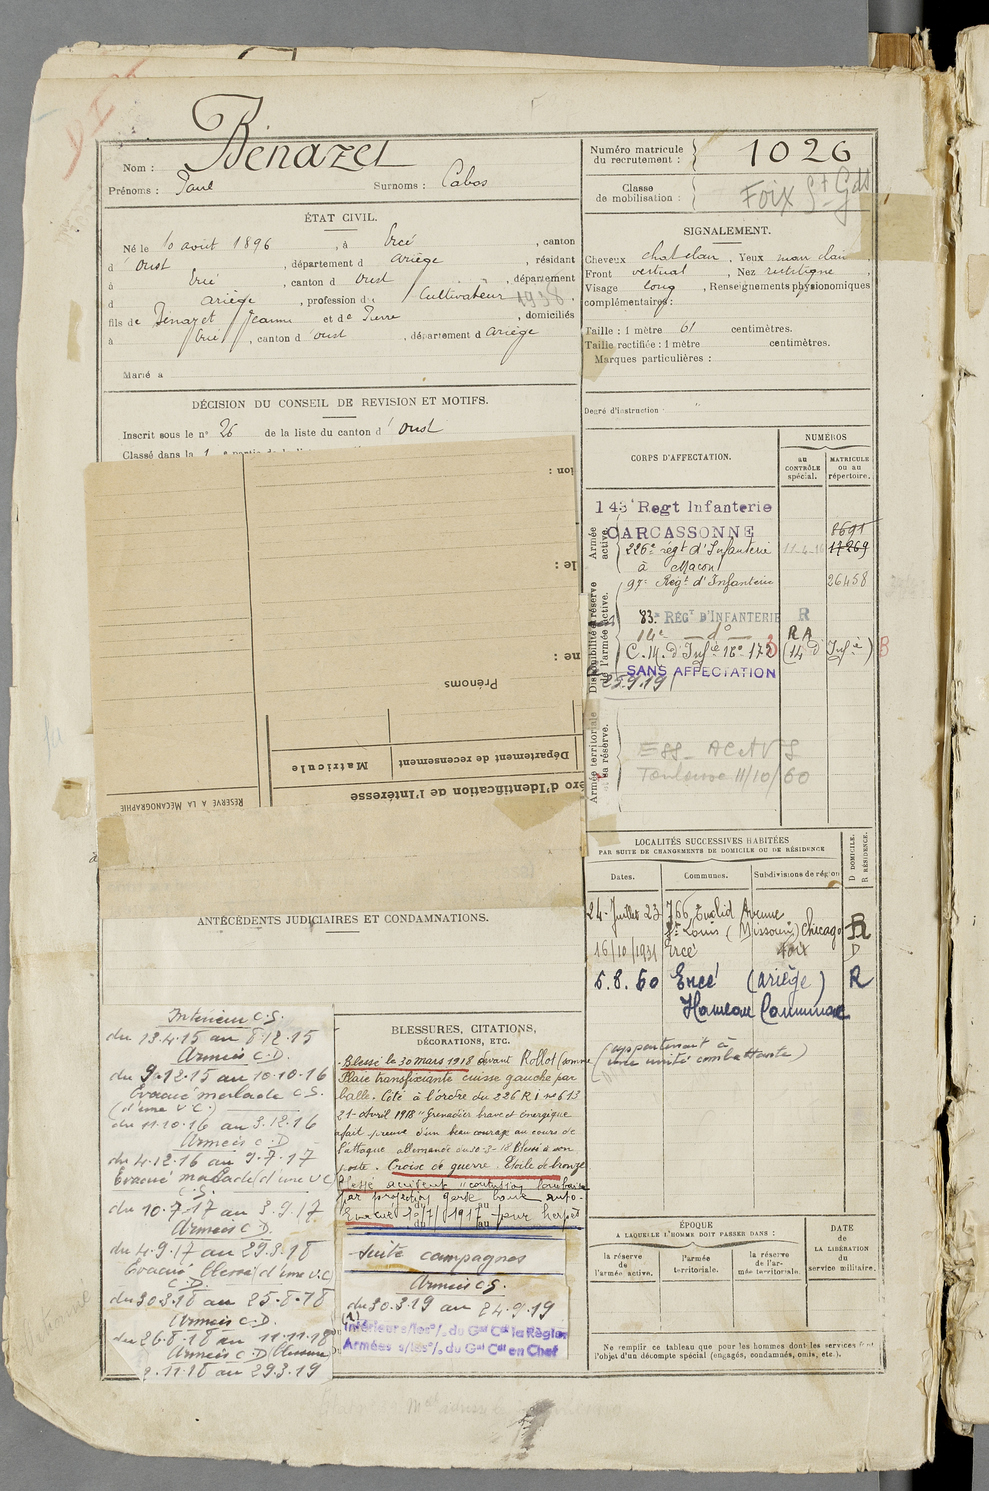 Nom : Bénazet
Prénoms : Paul Surnoms : Cabos
Numéro matricule
du recrutement : 1026
Classe
de mobilisation : Foix St Gds
ÉTAT CIVIL.
Né le 10 août 1896, à Ercé, canton
d'Oust, département d Ariège, résidant
à Ercé, canton d Oust, département
d Ariège, profession de Cultivateur 1938.
fils de Bénazet Jeanne et de Pierre, domiciliés
à Ercé, canton d'Oust, département d Ariège
Marié à
SIGNALEMENT.
Cheveux chatclair, Yeux marr clair
Front vertical, Nez rectiligne,
Visage long, Renseignements physionomiques
complémentaires :
Taille : 1 mètre 61 centimètres.
Taille rectifiée : 1 mètre centimètres.
Marques particulières :
Degré d'instruction
DÉCISION DU CONSEIL DE REVISION ET MOTIFS.
Inscrit sous le n° 26 de la liste du canton d'Oust
Classé dans la 1
Prénoms
Département de recensement
Matricule
ro d'Identification de l'Intéressé
RÉSERVÉ A LA MÉCANOGRAPHIE
CORPS D'AFFECTATION.
NUMÉROS
au
CONTRÔLE
spécial.
MATRICULE
ou au
répertoire.
Armée
active.
143e Regt Infanterie
CARCASSONNE
8691
226e régt d'Infanterie 11-4-16 17269
à Macon
97e Régt d'Infanterie 26458
Disponibilité et réserve
de l'armée active.
83e RÉGt D'INFANTERIE R
14e — do — RA
C.M. d'Infie 18e 173 (14 d Infie) B
SANS AFFECTATION
25.9.19
Armée territoriale
et sa réserve.
Toulouse 11/10/60
LOCALITÉS SUCCESSIVES HABITÉES
PAR SUITE DE CHANGEMENTS DE DOMICILE OU DE RÉSIDENCE
Dates.
Communes.
Subdivisions de région
D DOMICILE.
R RÉSIDENCE.
24-Juillet 23 766 Euclid Avenue
St Louis (Missouri) Chicago R
16/10/1931 Ercé Foix D
5.8.60 Ercé (Ariège) R
Hameau Cominac
(appartenant à
une unité combattante)
ANTÉCÉDENTS JUDICIAIRES ET CONDAMNATIONS.
Intérieur C.S.
du 13.4.15 au 8.12.15
Armées C.D.
du 9.12.15 au 10.10.16
Évacué malade C.S.
(d'une V.C.)
du 11.10.16 au 3.12.16
Armées C.D
du 4.12.16 au 9.7.17
Evacué malade (d'une V C)
C.S.
du 10.7.17 au 3.9.17
Armées C.D.
du 4.9.17 au 29.3.18
Evacué blessé (d'une V.C)
C.D.
du 30.3.18 au 25.8.18
Armées C.D.
du 26.8.18 au 11.11.18
Armées C.D. blessure
.11.18 au 29.3.19
BLESSURES, CITATIONS,
DÉCORATIONS, ETC.
Blessé le 30 mars 1918 devant Rollot (Somme
Plaie transfixiante cuisse gauche par
balle. Cité à l'ordre du 226 RI n° 613
21-Avril 1918 "Grenadier brave et énergique
a fait preuve d'un beau courage au cours de
l'attaque allemande du 30-3-18 Blessé à son
poste. Croix de guerre. Étoile de bronze
Blessé accident "contusion lombaire
par projection garde boue auto-
Evacué 10/7/1917 pour herpès
Suite campagnes
Armées C.S.
du 30.3.19 au 24.9.19
Intérieur s/les o/. du Gal Cdt la Région
Armées s/les o/. du Gal Cdt en Chef
ÉPOQUE
A LAQUELLE L'HOMME DOIT PASSER DANS :
la réserve
de
l'armée active.
l'armée
territoriale.
la réserve
de l'ar-
mée territoriale.
DATE
de
LA LIBÉRATION
du
service militaire.
Ne remplir ce tableau que pour les hommes dont les services font
l'objet d'un décompte spécial (engagés, condamnés, omis, etc.).